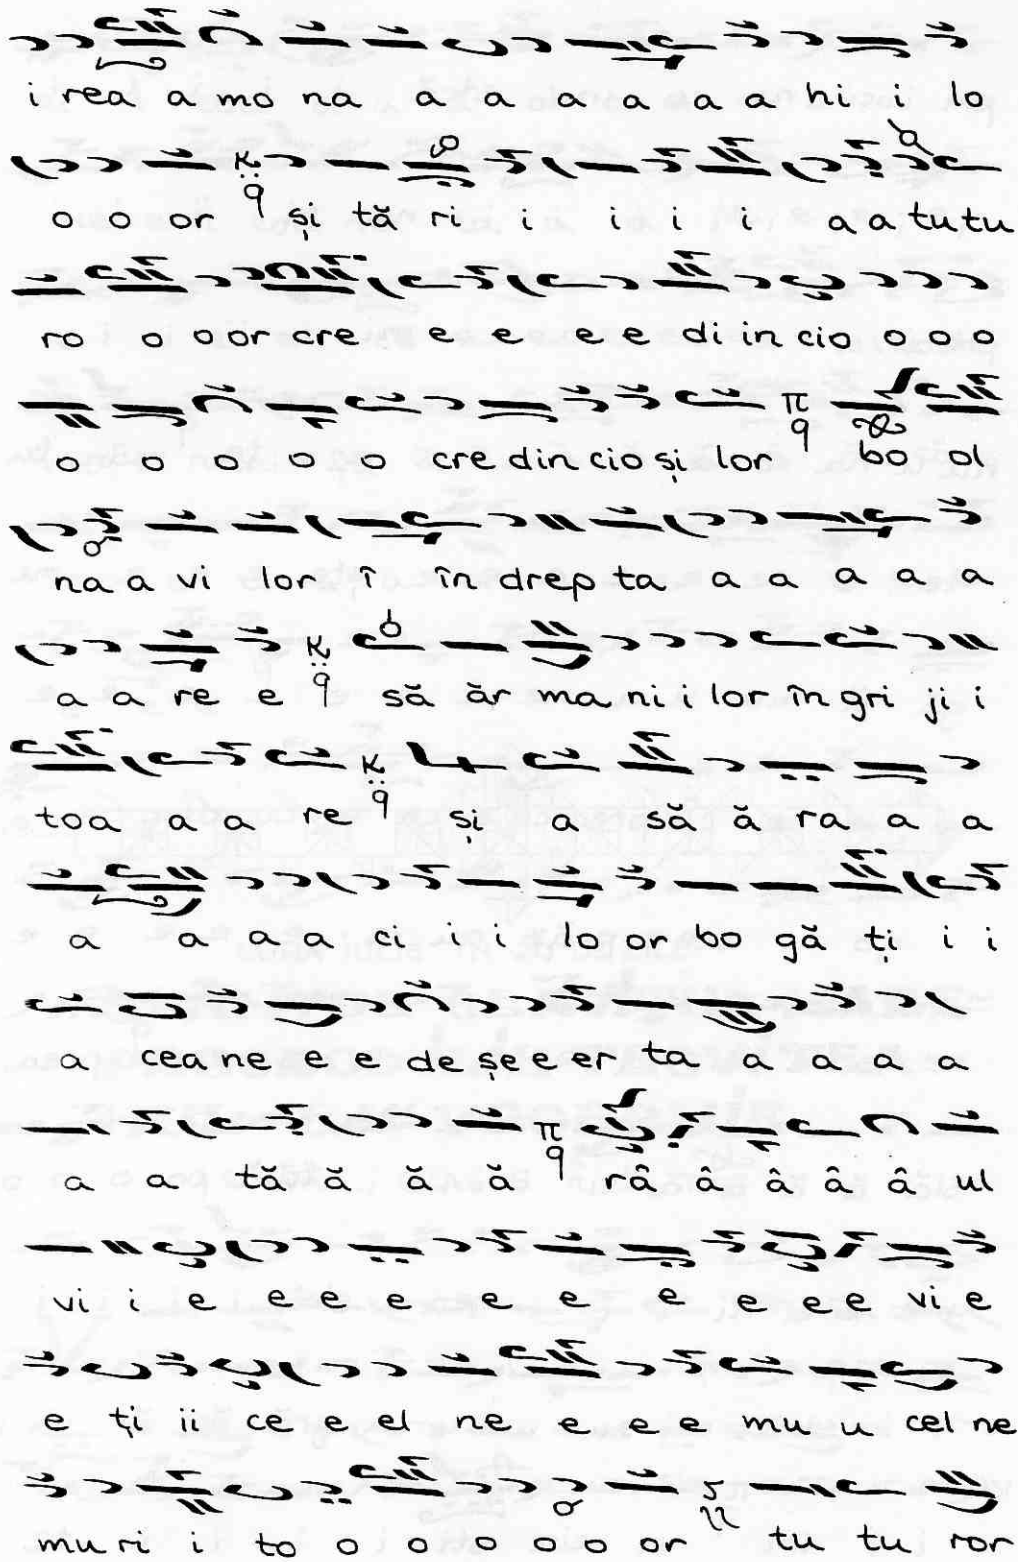 i rea a mo na a a a a a a hi i lo
o o or și tă ri i i i i a a tu tu
ro o o or cre e e e e e di in cio o o o
o o o o o cre din cio și lor bo ol
na a vi lor î în drep ta a a a a a
a a re e să ăr ma ni i lor în gri ji i
toa a a re și a să ă ra a a
a a a a ci i i lo or bo gă ți i i
a cea ne e e de șe e er ta a a a a
a a tă ă ă ă râ â â â â ul
vi i e e e e e e e e e e vi e
e ți ii ce e el ne e e e mu u cel ne
mu ri i to o o o o o or tu tu ror